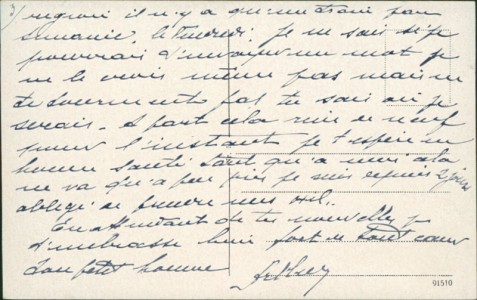 3/ il n'y a qu'un train par
semaine, le Vendredi. Je ne sais si je
pourrais t'envoyer un mot je
ne le crois même pas mais ne
te tourmente pas tu sais où je
serais. A part cela rien de neuf
pour l'instant je t'espère en
bonne santé tant qu'a moi cela
ne va qu'a peu près je suis depuis 2 jours
obligé de
En attendant de tes nouvelles je
t'embrasse bien fort de tout cœur
Ton petit homme
91510